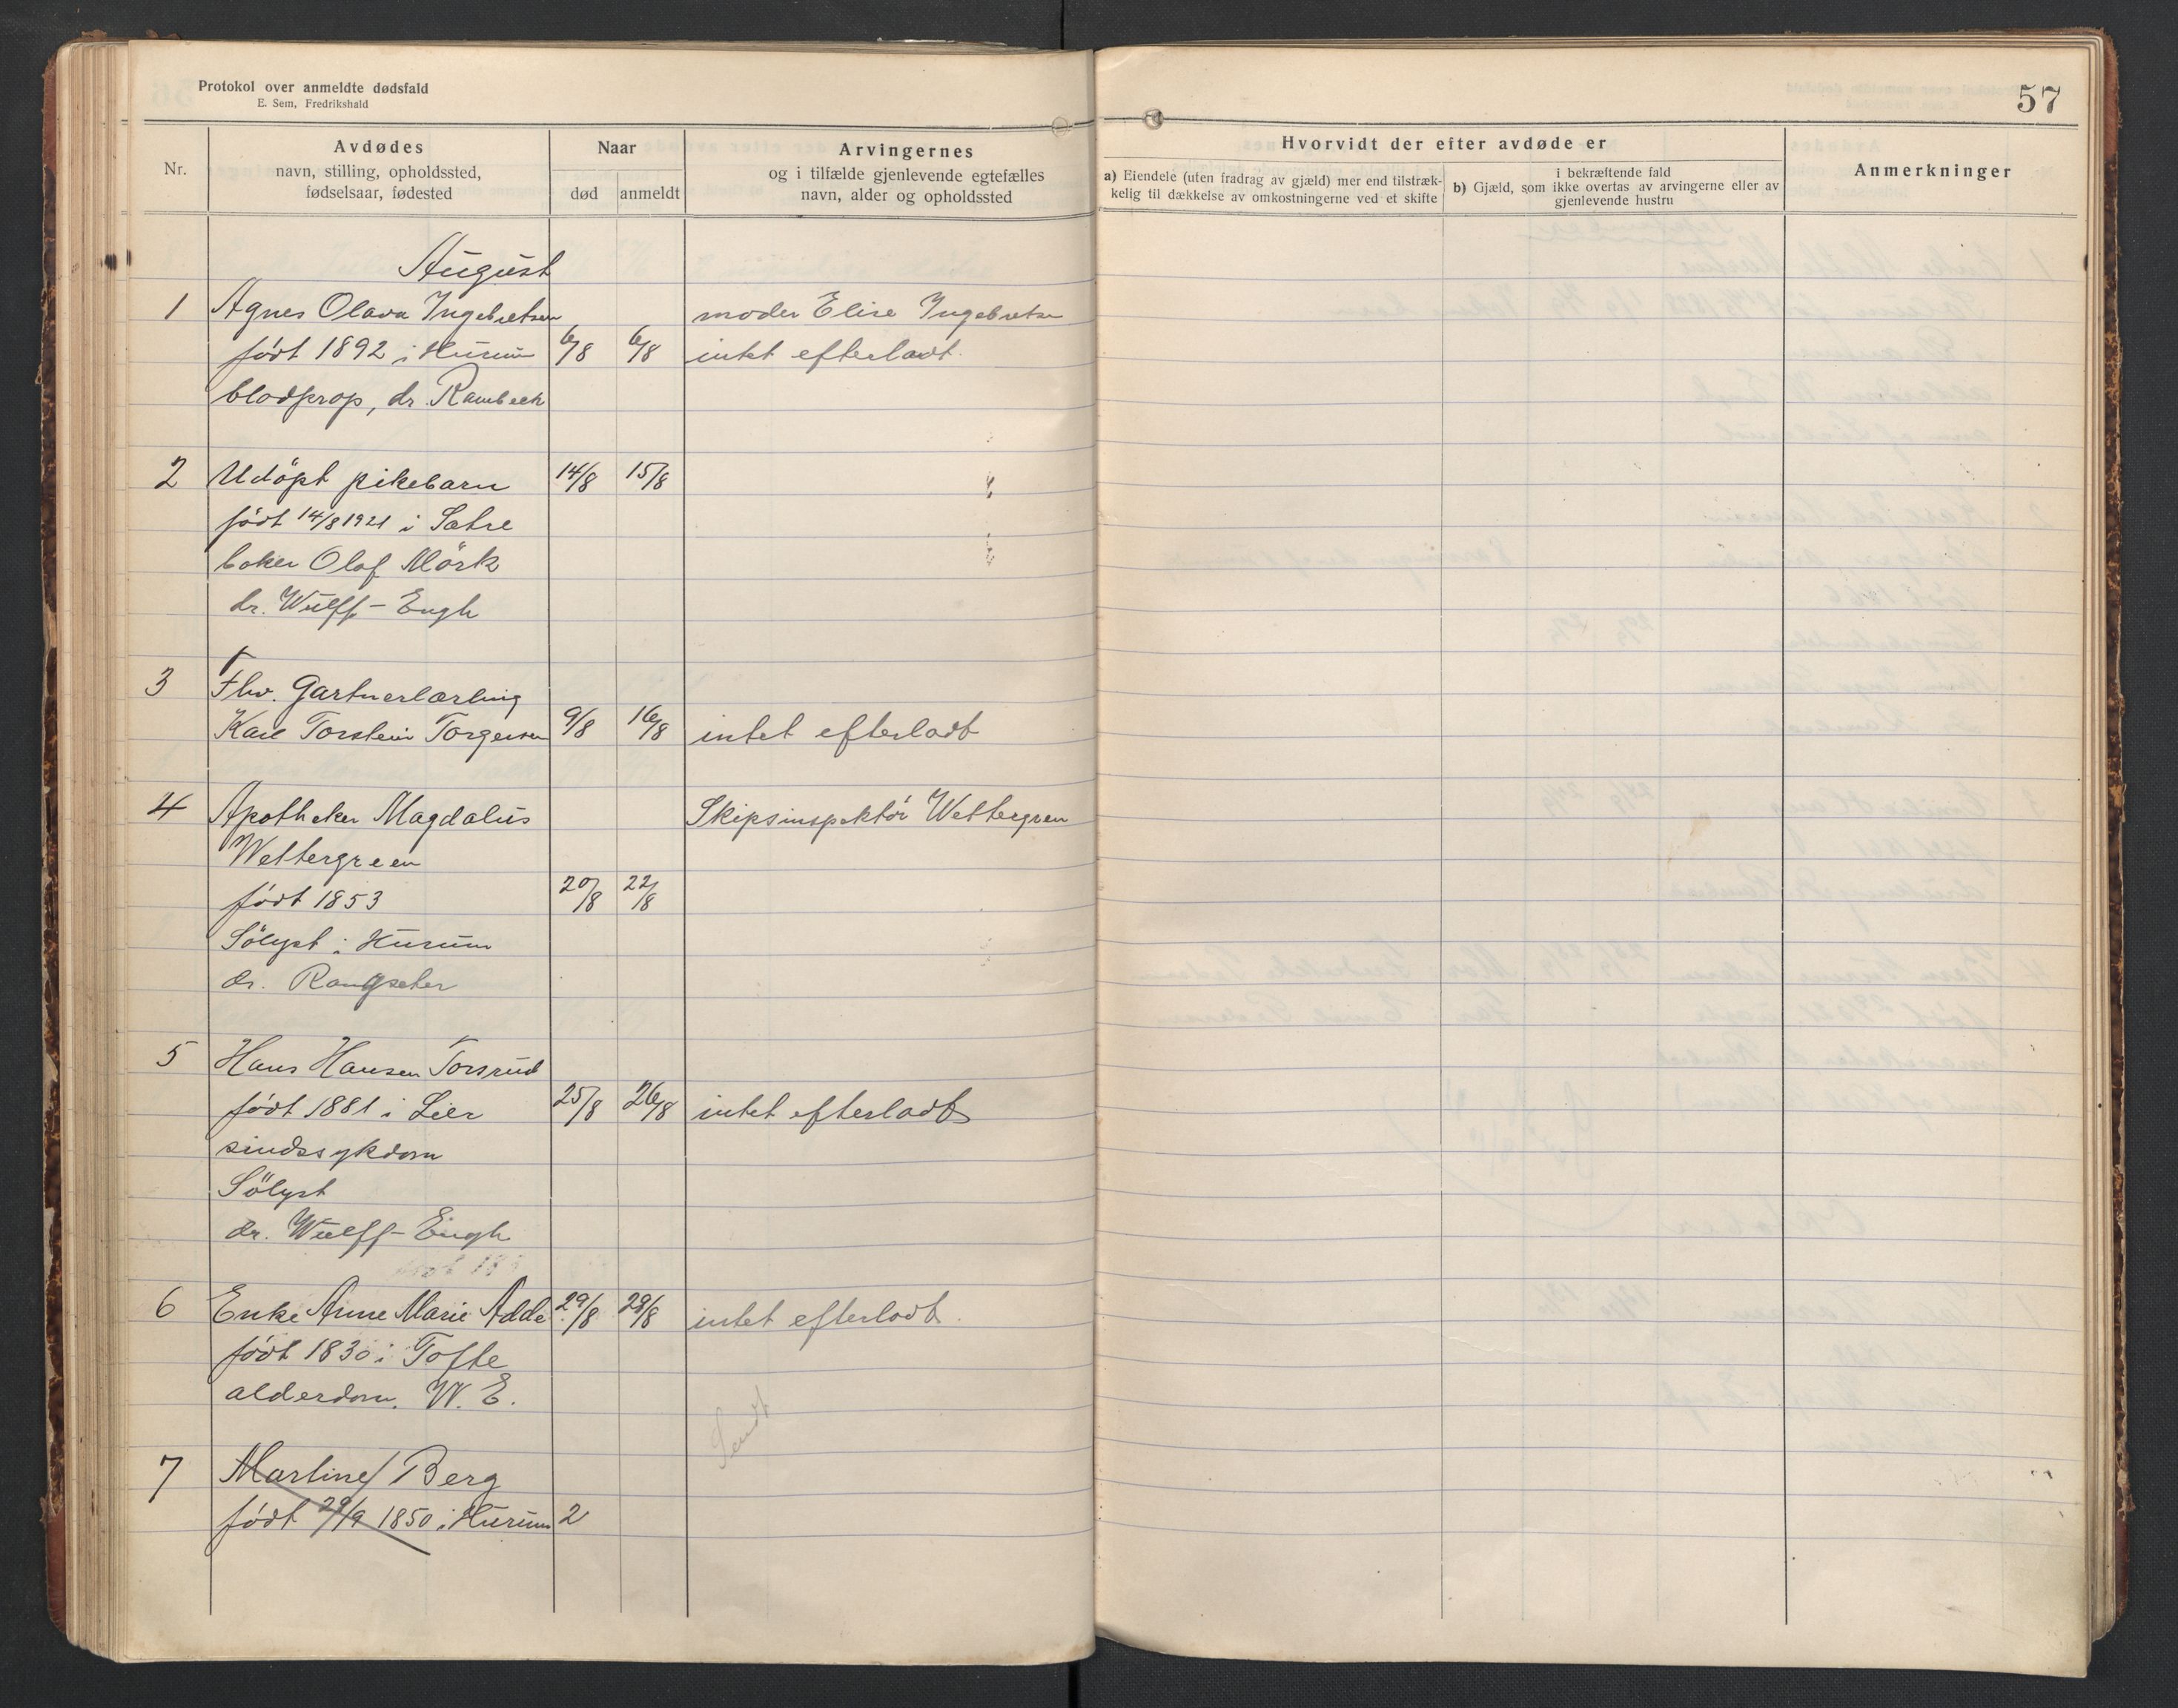 Protokol over anmeldte dødsfald
E. Sem, Fredrikshald
57
Nr.
Avdødes
navn, stilling, opholdssted,
fødselsaar, fødested
Naar
død
anmeldt
Arvingernes
og i tilfælde gjenlevende egtefælles
navn, alder og opholdssted
Hvorvidt der efter avdøde er
a) Eiendele (uten fradrag av gjæld) mer end tilstræk-
kelig til dækkelse av omkostningerne ved et skifte
i bekræftende fald
b) Gjæld, som ikke overtas av arvingerne eller av
gjenlevende hustru
Anmerkninger
August
1 Agnes Olava Ingebretsen moder Elise Ingebretsen
født 1892 i Hurum 6/8 6/8 intet efterladt.
blodprop, dr. Rambech
2 Udöpt pikebarn 14/8 15/8
født 14/8 1921 i Sætre
baker Olaf Mörk
dr. Wülff-Engh
3 Fhv. Gartnerlærling
Karl Torstein Torgersen 9/8 16/8 intet efterladt
4 Apotheker Magdalus Skipsinspektör Wettergren
Wettergreen
født 1853 20/8 22/8
Sölyst i Hurum
dr. Rangseter
5 Hans Hansen Torsrud
født 1881 i Lier 25/8 26/8 intet efterladt
sindssykdom
Sölyst
dr. Wülff-Engh
6 Enke Anne Marie 29/8 29/8 intet efterladt.
født 1830 i Tofte
alderdom. W. E.
Sendt
7 Martine Berg
født 29/9 1850 i Hurum 2